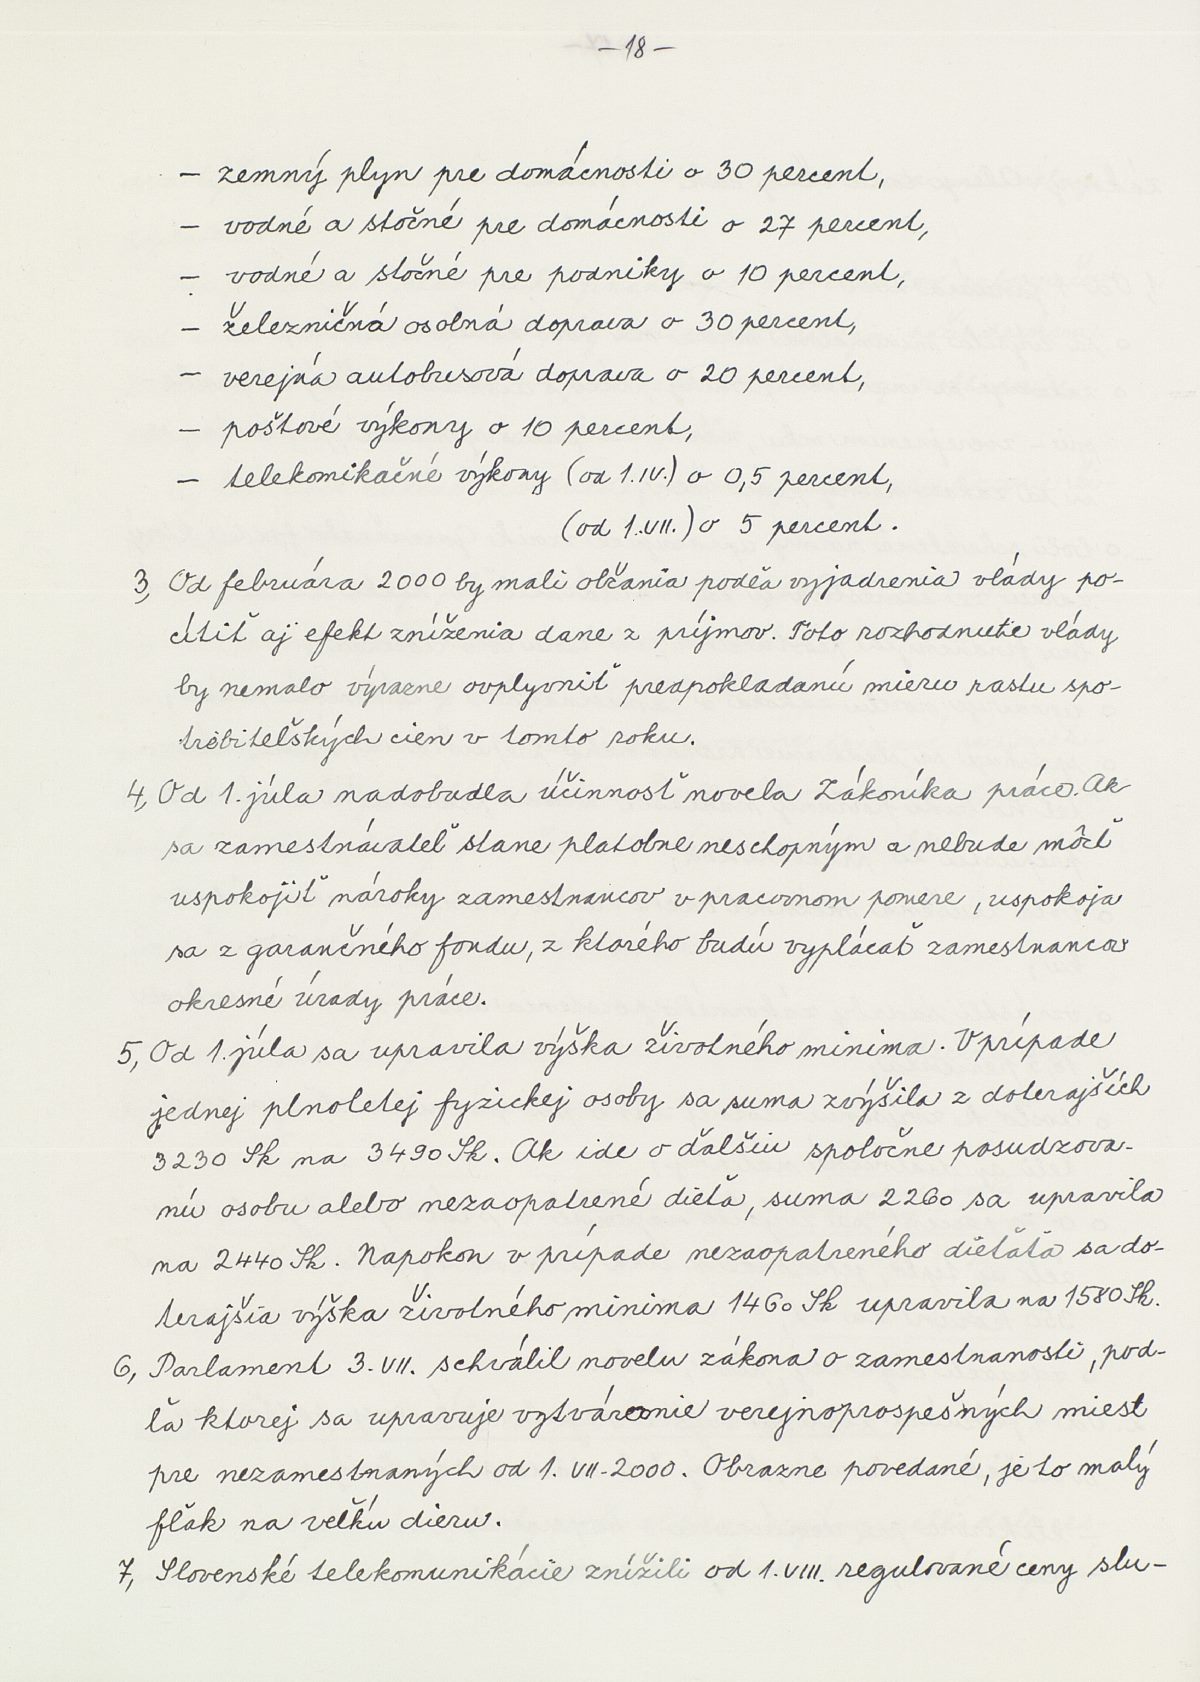 – 18 –
– zemný plyn pre domácnosti o 30 percent,
– vodné a stočné pre domácnosti o 27 percent,
– vodné a stočné pre podniky o 10 percent,
– železničná osobná doprava o 30 percent,
– verejná autobusová doprava o 20 percent,
– poštové výkony o 10 percent,
– telekomikačné výkony (od 1.IV.) o 0,5 percent,
(od 1.VII.) o 5 percent.
3, Od februára 2000 by mali občania podľa vyjadrenia vlády po-
cítiť aj efekt zníženia dane z príjmov. Toto rozhodnutie vlády
by nemalo výrazne ovplyvniť predpokladanú mieru rastu spo-
trebiteľských cien v tomto roku.
4, Od 1. júla nadobudla účinnosť novela Zákoníka práce. Ak
sa zamestnávateľ stane platobne neschopným a nebude môcť
uspokojiť nároky zamestnancov v pracovnom pomere, uspokoja
sa z garančného fondu, z ktorého budú vyplácať zamestnancov
okresné úrady práce.
5, Od 1. júla sa upravila výška životného minima. V prípade
jednej plnoletej fyzickej osoby sa suma zvýšila z doterajších
3230 Sk na 3490 Sk. Ak ide o ďalšiu spoločne posudzova-
nú osobu alebo nezaopatrené dieťa, suma 2260 sa upravila
na 2440 Sk. Napokon v prípade nezaopatreného dieťaťa sa do-
terajšia výška životného minima 1460 Sk upravila na 1580 Sk.
6, Parlament 3. VII. schválil novelu zákona o zamestnanosti, pod-
ľa ktorej sa upravuje vytváranie verejnoprospešných miest
pre nezamestnaných od 1. VII. 2000. Obrazne povedané, je to malý
fľak na veľkú dieru.
7, Slovenské telekomunikácie znížili od 1. VIII. regulované ceny slu-